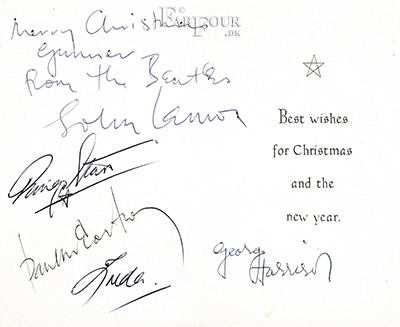 FabFour
.DK
Merry Christmas
Gunner
From the Beatles
John Lennon
Ringo Starr
Paul McCartney
Freda.
Best wishes
for Christmas
and the
new year.
George
Harrison